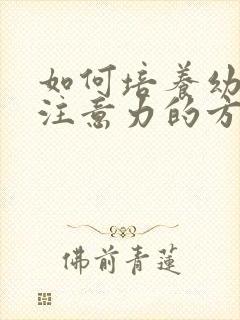 如何培养幼
注意力的方
佛前青莲